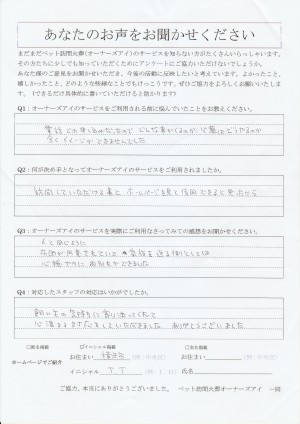 あなたのお声をお聞かせください
まだまだペット訪問火葬(オーナーズアイ)のサービスを知らない方がたくさんいらっしゃいます。
その方たちに少しでも知っていただくためにアンケートにご協力いただけないでしょうか。
あなた様のご意見をお聞かせいただき、今後の活動に反映したいと考えています。よかったこと、
嬉しかったこと、どのような些細なことでもけっこうです。ぜひご協力をよろしくお願いいたしま
す。(できるだけ具体的に書いていただけると助かります)
Q1：オーナーズアイのサービスをご利用される前に悩んでいたことをお教えください。
電話での申し込みだったので どんな車がくるのか、火葬はどうやるのか
全くイメージができませんでした
Q2：何が決め手となってオーナーズアイのサービスをご利用されましたか。
訪問していただける事と、ホームページを見て信用できると思ったから
Q3：オーナーズアイのサービスを実際にご利用になさってみての感想をお聞かせください。
人と同じように
お別れ
家族を送る側としては
心穏やかにお別れができました
Q4：対応したスタッフの対応はいかがでしたか。
飼い主の気持ちに寄り添ってくれて
心温まる対応をしていただきました ありがとうございました
□匿名掲載 ☑イニシャル掲載 □実名掲載
ホームページでご紹介 お住まい (例：中央区) お住まい (例：中央区)
イニシャル T.T (例：I.H) 氏名
ご協力、本当にありがとうございました。 ペット訪問火葬オーナーズアイ 一同